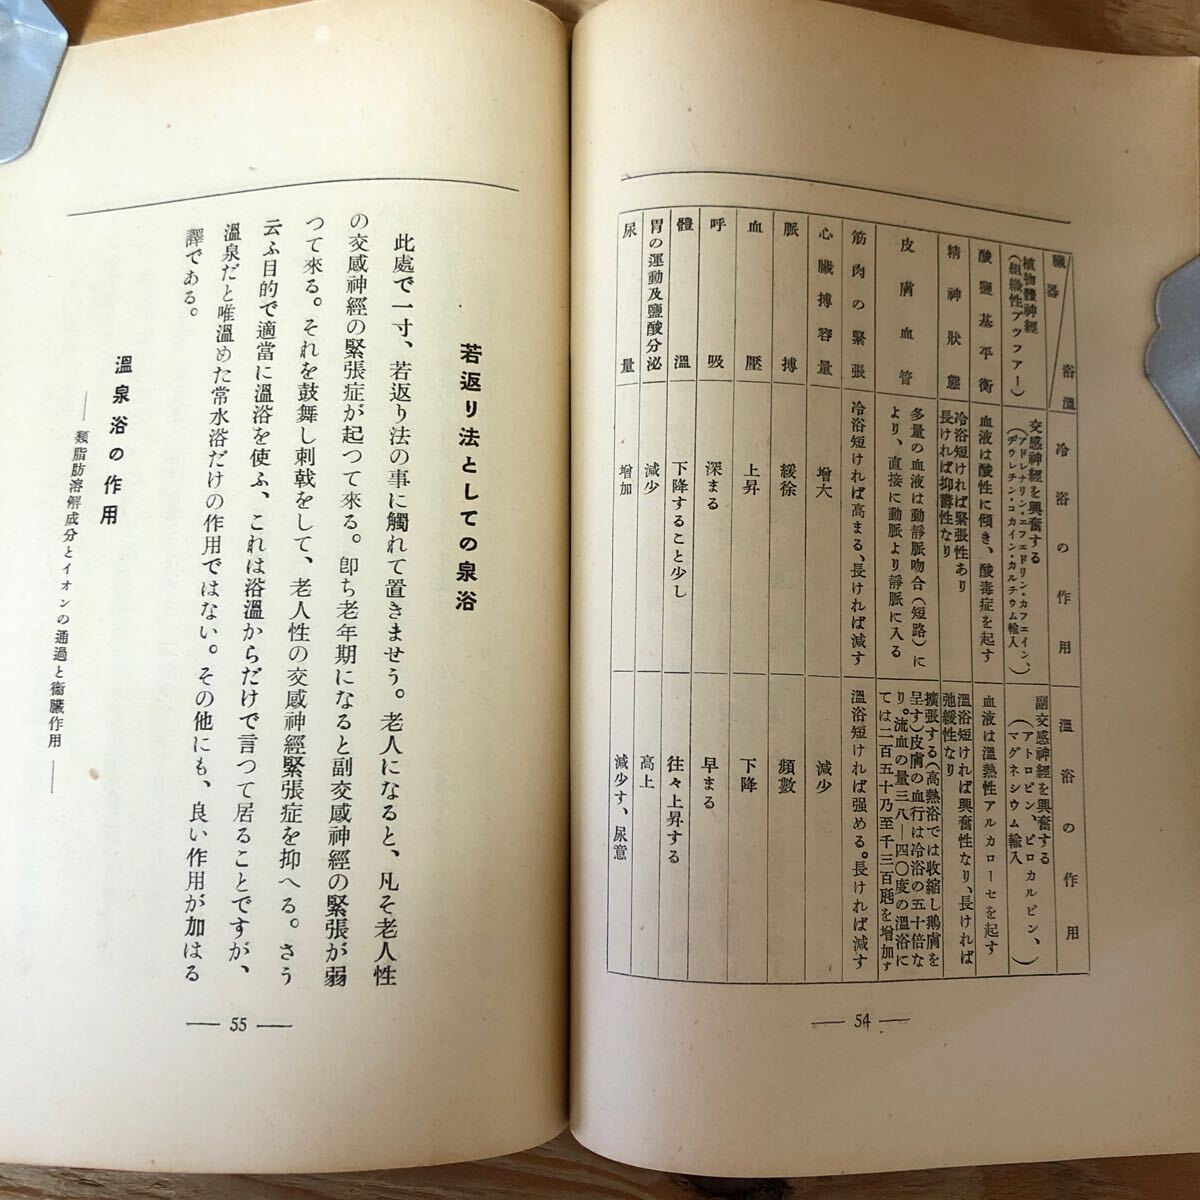 臟器 浴溫
冷浴の作用
溫浴の作用
植物體神經
(組織性プッファー)
交感神經を興奮する
(アドレナリン・エフェドリン・カフェイン、
ヂウレチン・コカイン・カルチウム輸入)
副交感神經を興奮する
(アトロピン、ピロカルピン、
マグネシウム輸入)
酸鹽基平衡
血液は酸性に傾き、酸毒症を起す
血液は溫熱性アルカローセを起す
精神狀態
冷浴短ければ緊張性あり
長ければ抑鬱性なり
溫浴短ければ興奮性なり、長ければ
弛緩性なり
皮膚血管
多量の血液は動靜脈吻合(短路)に
より、直接に動脈より靜脈に入る
擴張する(高熱浴では收縮し鵝膚を
呈す)皮膚の血行は冷浴の五十倍な
り。流血の量三八—四〇度の溫浴に
ては二百五十乃至千三百竓を增加す
筋肉の緊張
冷浴短ければ高まる、長ければ減す
溫浴短ければ强める。長ければ減す
心臟搏容量
增大
減少
脈搏
緩徐
頻數
血壓
上昇
下降
呼吸
深まる
早まる
體溫
下降すること少し
往々上昇する
胃の運動及鹽酸分泌
減少
高上
尿量
增加
減少す、尿意
— 54 —
若返り法としての泉浴
此處で一寸、若返り法の事に觸れて置きませう。老人になると、凡そ老人性
の交感神經の緊張症が起つて來る。卽ち老年期になると副交感神經の緊張が弱
つて來る。それを鼓舞し刺戟をして、老人性の交感神經緊張症を抑へる。さう
云ふ目的で適當に溫浴を使ふ、これは浴溫からだけで言つて居ることですが、
溫泉だと唯溫めた常水浴だけの作用ではない。その他にも、良い作用が加はる
譯である。
溫泉浴の作用
— 類脂肪溶解成分とイオンの通過と衞臟作用 —
— 55 —